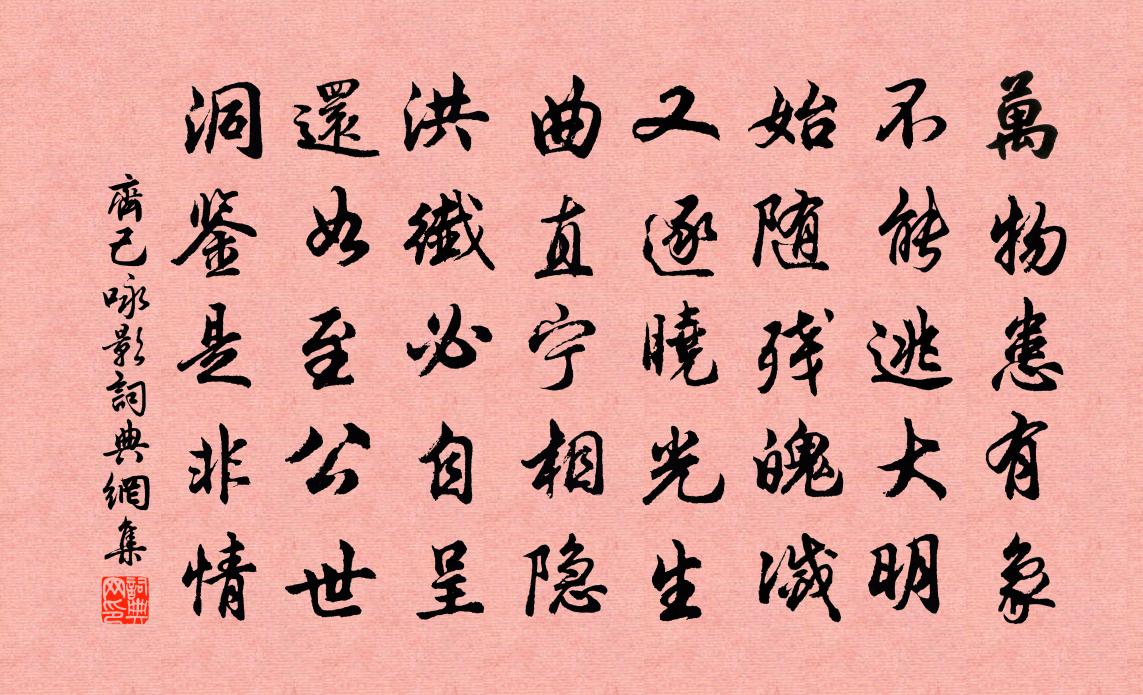 萬物患有象
不能逃大明
始随残魄滅
又逐曉光生
曲直宁相隐
洪纖必自呈
還如至公世
洞鉴是非情
齊己咏影詞典網集
詞典網印